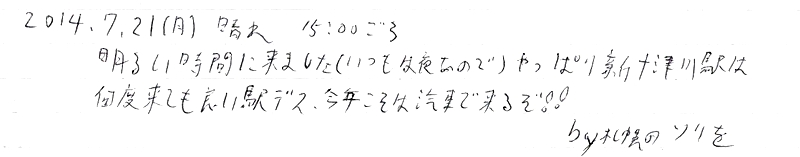 2014.7.21(月) 晴れ 15:00ごろ
明るい時間に来ました(いつもは夜なので)やっぱり新十津川駅は
何度来ても良い駅デス、今年こそは汽車で来るぞ!!
by札幌のソリを